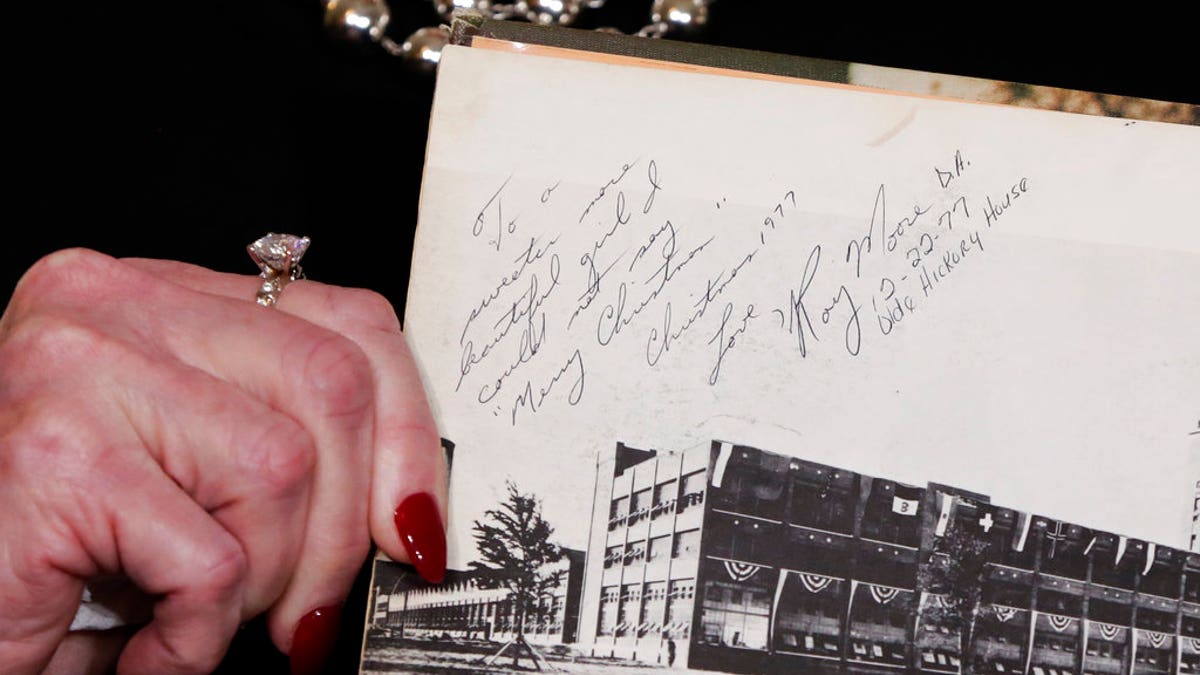 To a
sweeter more
beautiful girl I
could not say
"Merry Christmas"
Christmas 1977
Love
Roy Moore D.A.
12-22-77
Olde Hickory House
B